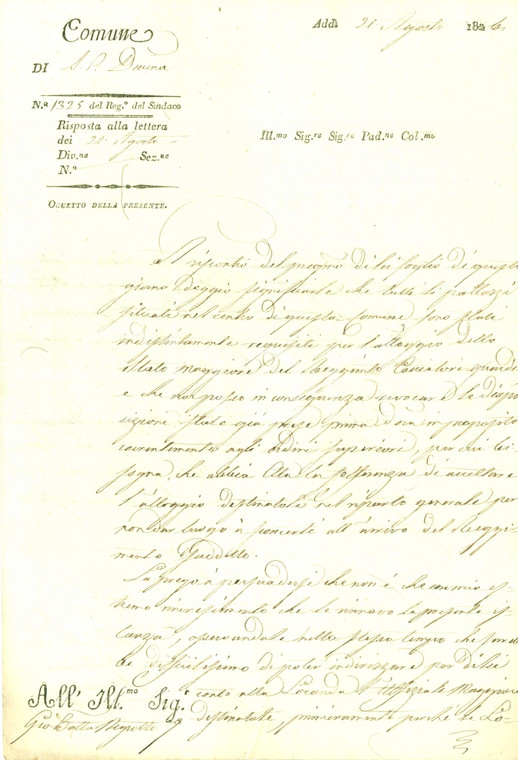 Comune
DI S. P. Darena
Addì 21 Agosto 1826
N.º 1325 del Reg.º del Sindaco
Risposta alla lettera
dei 21 Agosto
Div.ne Sez.ne
N.º
Ill.mo Sig.re Sig.re Pad.ne Col.mo
OGGETTO DELLA PRESENTE.
A riscontro del pregmo di lei foglio di questo
giorno deggio significarle che tutti li palazzi
situati nel centro di questa comune sono stati
indistintamente requisiti per l'alloggio dello
Stato Maggiore del Reggimto Cacciatori guardie
e che non posso in conseguenza revocare le dispo
sizioni state già prese prima d'ora in proposito
coerentemente agli ordini superiori, per cui bi-
sogna, che abbia Ella la sofferenza di accettare
l'alloggio destinatole nel riparto generale per
non dar luogo a sconcerti all'arrivo del Reggi-
mento suddetto.
La prego a persuadersi che non è che con mio e-
stremo rincrescimento che le rinnovo la presente is-
tanza, osservandole nello stesso tempo che sareb-
be difficilissimo di poter indirizzare per di lei
conto alla Locanda l'Uffiziale Maggiore
destinatole, primieramente perché le Lo-
All' Ill.mo Sig.
Gio Batta Negrotto